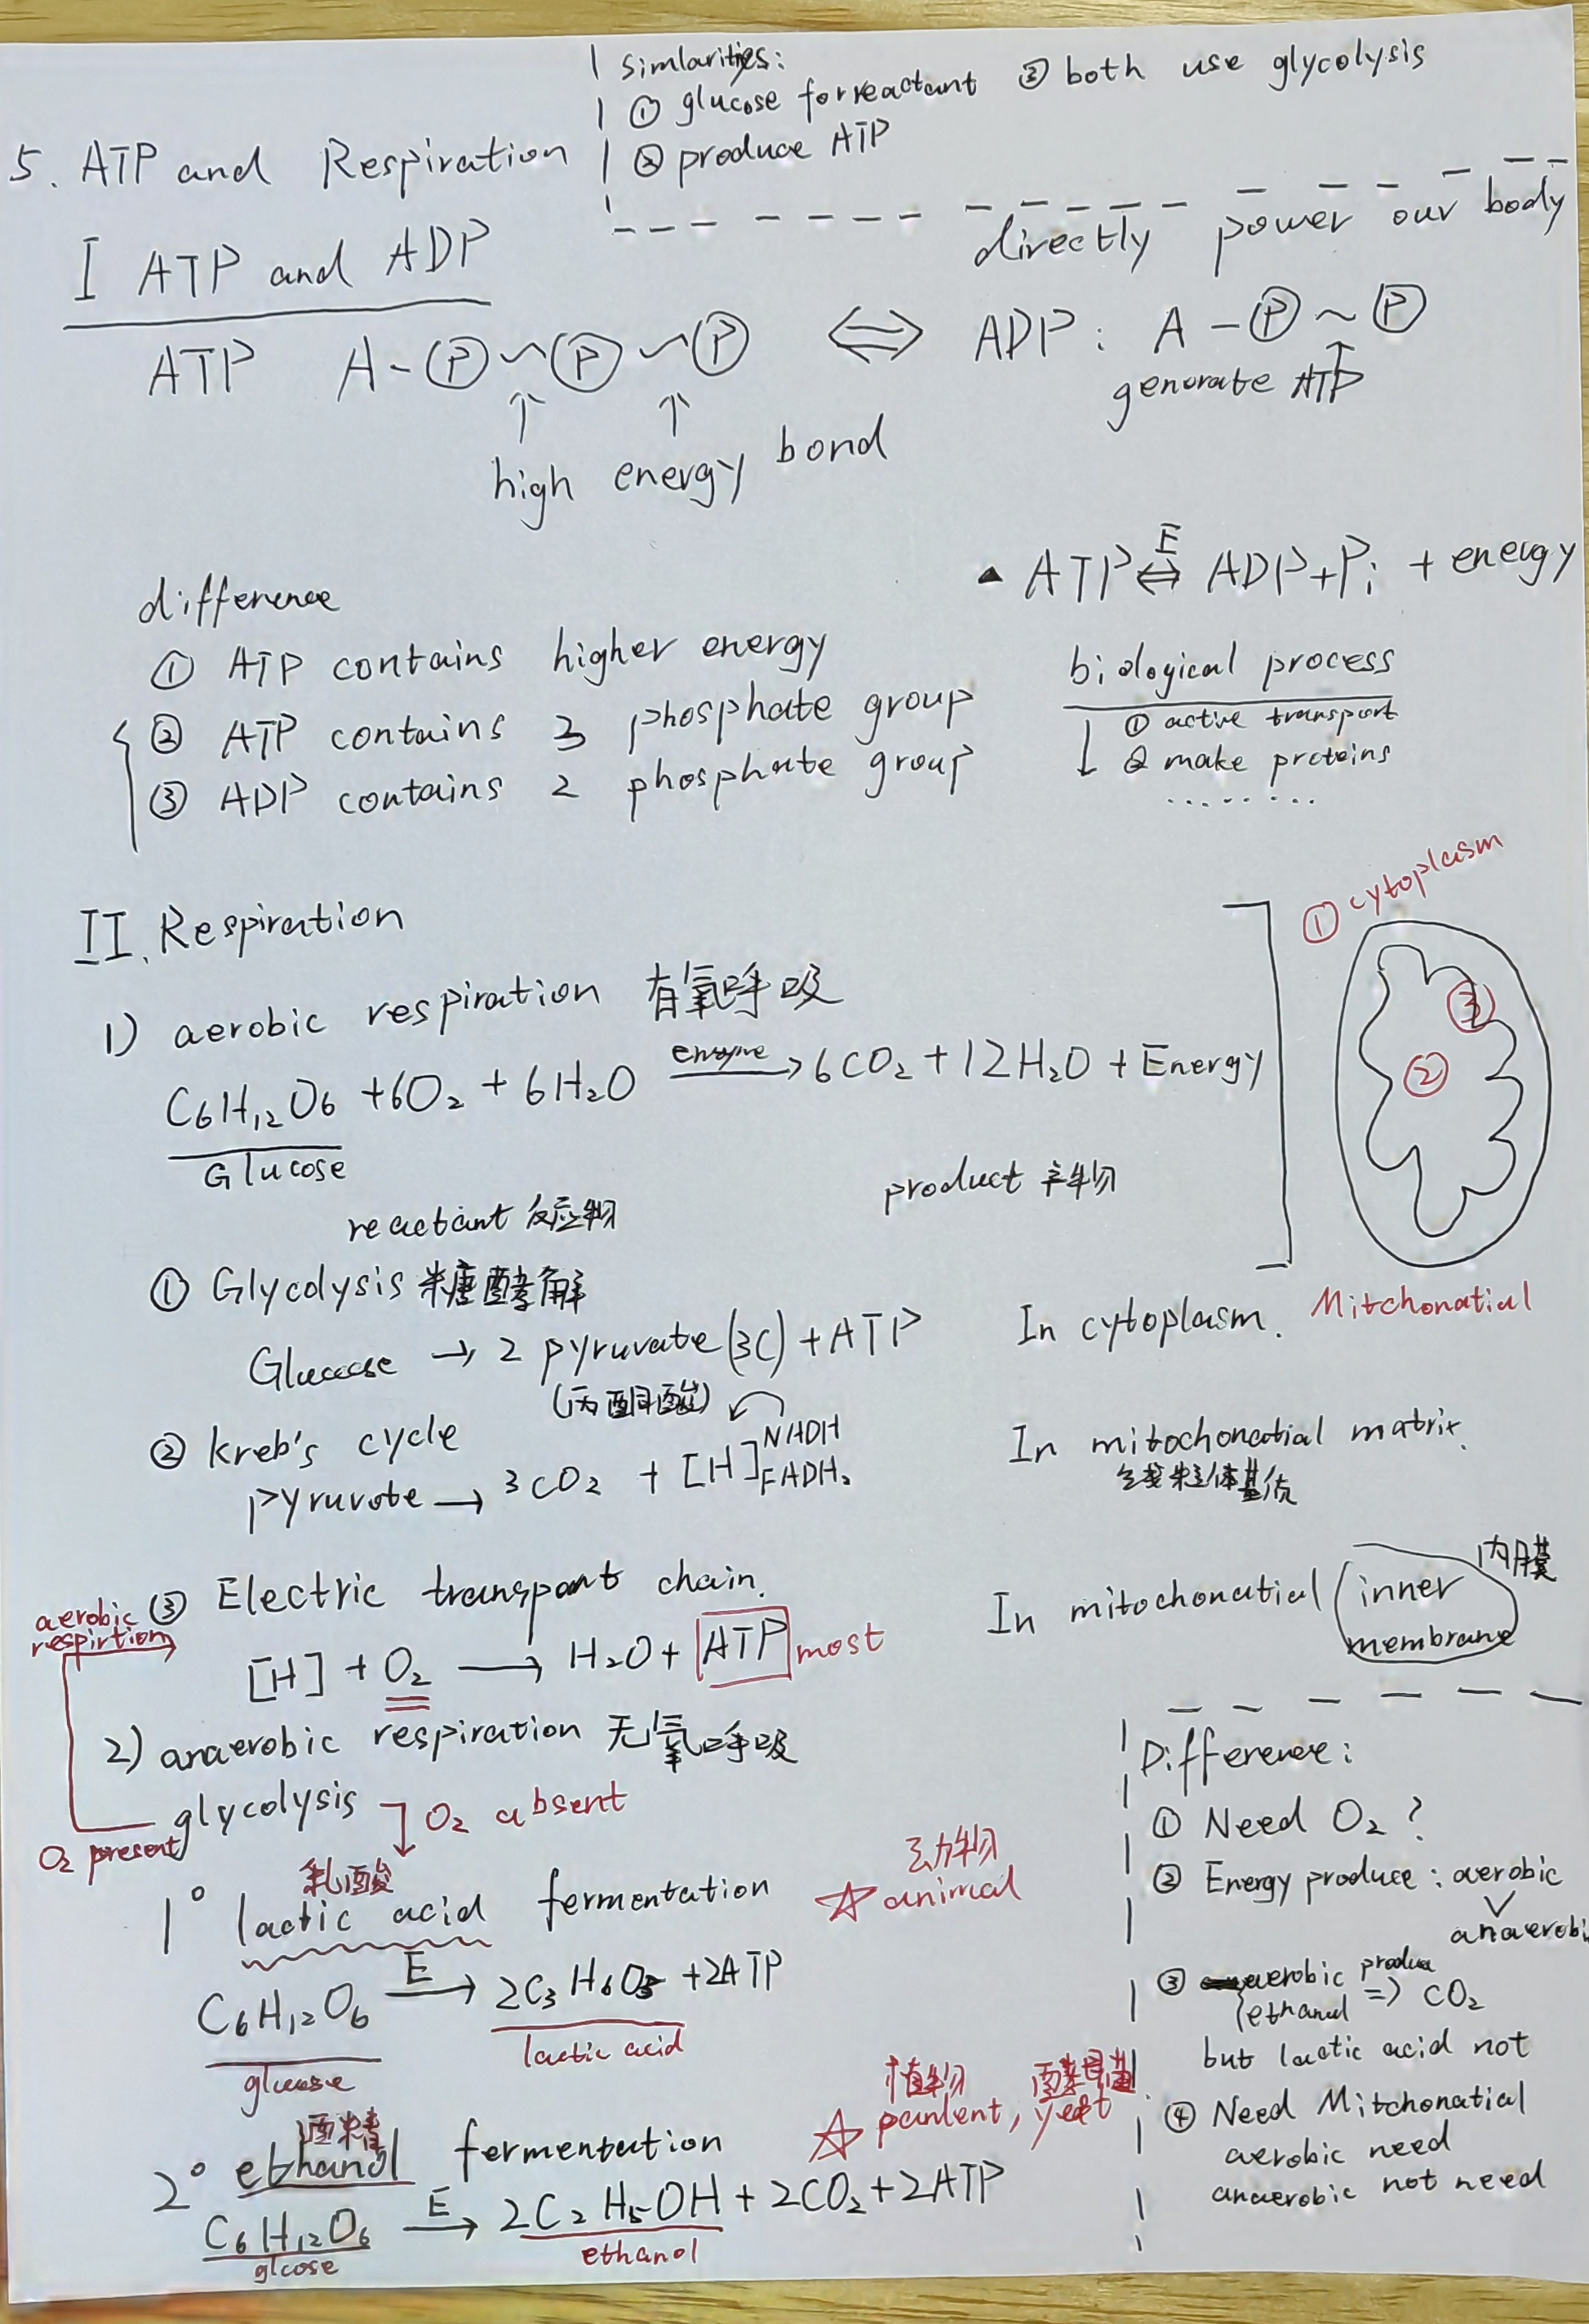 Simlarities:
① glucose for reactant ③ both use glycolysis
② produce ATP
5. ATP and Respiration
I ATP and ADP
directly power our body
ATP A-Ⓟ~Ⓟ~Ⓟ ⇔ ADP: A-Ⓟ~Ⓟ
↑ ↑
generate ATP
high energy bond
▲ ATP ⇔ ADP+Pi + energy
E
difference
① ATP contains higher energy
② ATP contains 3 phosphate group
③ ADP contains 2 phosphate group
biological process
① active transport
② make proteins
.........
II. Respiration
1) aerobic respiration 有氧呼吸
C₆H₁₂O₆ + 6O₂ + 6H₂O enzyme → 6CO₂ + 12H₂O + Energy
Glucose
reactant 反应物
product 产物
① cytoplasm
③
②
Mitchonatial
① Glycolysis 糖酵解
Glucose → 2 pyruvate (3C) + ATP
(丙酮酸)
In cytoplasm.
② kreb's cycle
pyruvate → 3CO₂ + [H] NADH
FADH₂
In mitochonatial matrix.
线粒体基质
③ Electric transport chain.
[H] + O₂ → H₂O + ATP most
In mitochonatial inner membrane 内膜
aerobic
respirtion
2) anaerobic respiration 无氧呼吸
glycolysis O₂ absent
O₂ present
乳酸
1° lactic acid fermentation ☆ animal
动物
C₆H₁₂O₆ E → 2C₃H₆O₃ + 2ATP
glucose
lactic acid
酒精
2° ethanol fermentation ☆ panlent, yeat
植物 酵母菌
C₆H₁₂O₆ E → 2C₂H₅OH + 2CO₂ + 2ATP
glcose
ethanol
Difference:
① Need O₂ ?
② Energy produce: aerobic
∨
anaerobi
③ aerobic produce
ethanol => CO₂
but lactic acid not
④ Need Mitchonatial
aerobic need
anaerobic not need